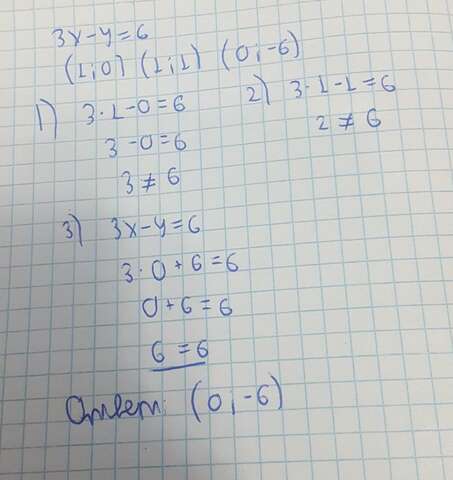 3x-y=6
(1;0) (1;1) (0;-6)
1) 3·1-0=6
3-0=6
3≠6
2) 3·1-1=6
2≠6
3) 3x-y=6
3·0+6=6
0+6=6
6=6
Ответ: (0;-6)